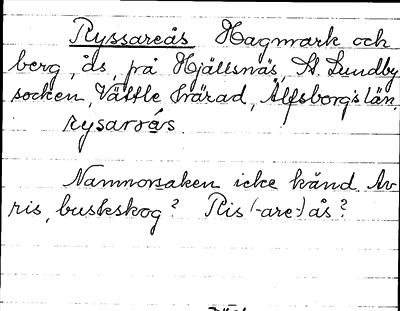 Ryssareås Hagmark och
berg, ås, på Hjällsnäs, St. Lundby
socken, Vättle härad, Älfsborgs län.
rysarås.
Namnorsaken icke känd. Av
ris, buskskog? Ris (-are-) ås?